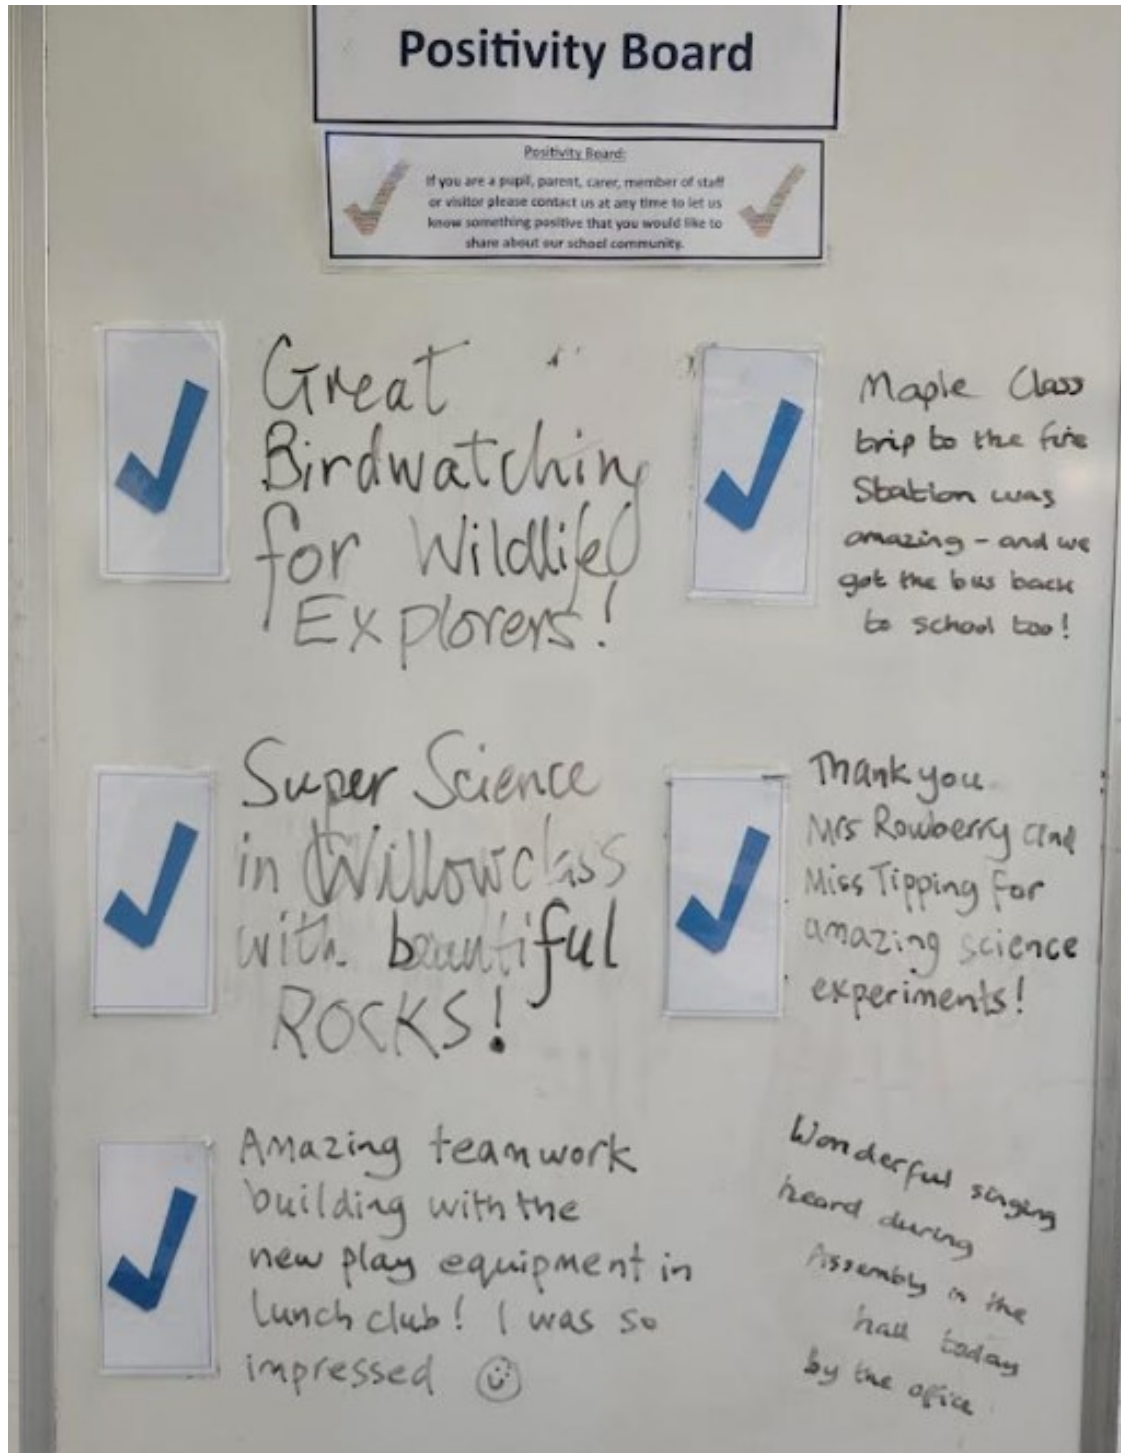 Positivity Board
Positivity Board:
If you are a pupil, parent, carer, member of staff
or visitor please contact us at any time to let us
know something positive that you would like to
share about our school community.
Great
Birdwatching
for Wildlife
Explorers!
Maple Class
trip to the fire
Station was
amazing - and we
got the bus back
to school too!
Super Science
in Willow class
with beautiful
ROCKS!
Thank you
Mrs Rowberry and
Miss Tipping for
amazing science
experiments!
Amazing teamwork
building with the
new play equipment in
lunch club! I was so
impressed ☺
Wonderful singing
heard during
Assembly in the
hall today
by the office